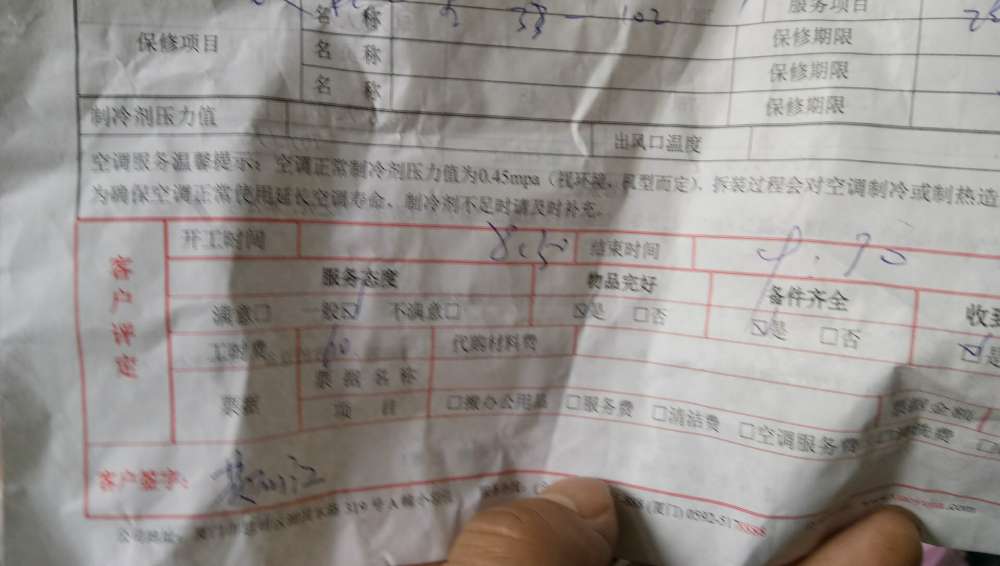 名 称 33-102 服务项目
保修项目 名 称 保修期限
名 称 保修期限
保修期限
制冷剂压力值 出风口温度
空调服务温馨提示：空调正常制冷剂压力值为0.45mpa（视环境、机型而定）、拆装过程会对空调制冷或制热造
为确保空调正常使用延长空调寿命、制冷剂不足时请及时补充。
客户评定
开工时间 8:50 结束时间
服务态度 物品完好 备件齐全 收
满意□ 一般☑ 不满意□ ☑是 □否 ☑是 □否 ☑是
工时费 代购材料费
票据 票据名称 票据金额
项 目 □搬办公用品 □服务费 □清洁费 □空调服务费
客户签字：
公司地址： 319号 (厦门) 0592-5178888